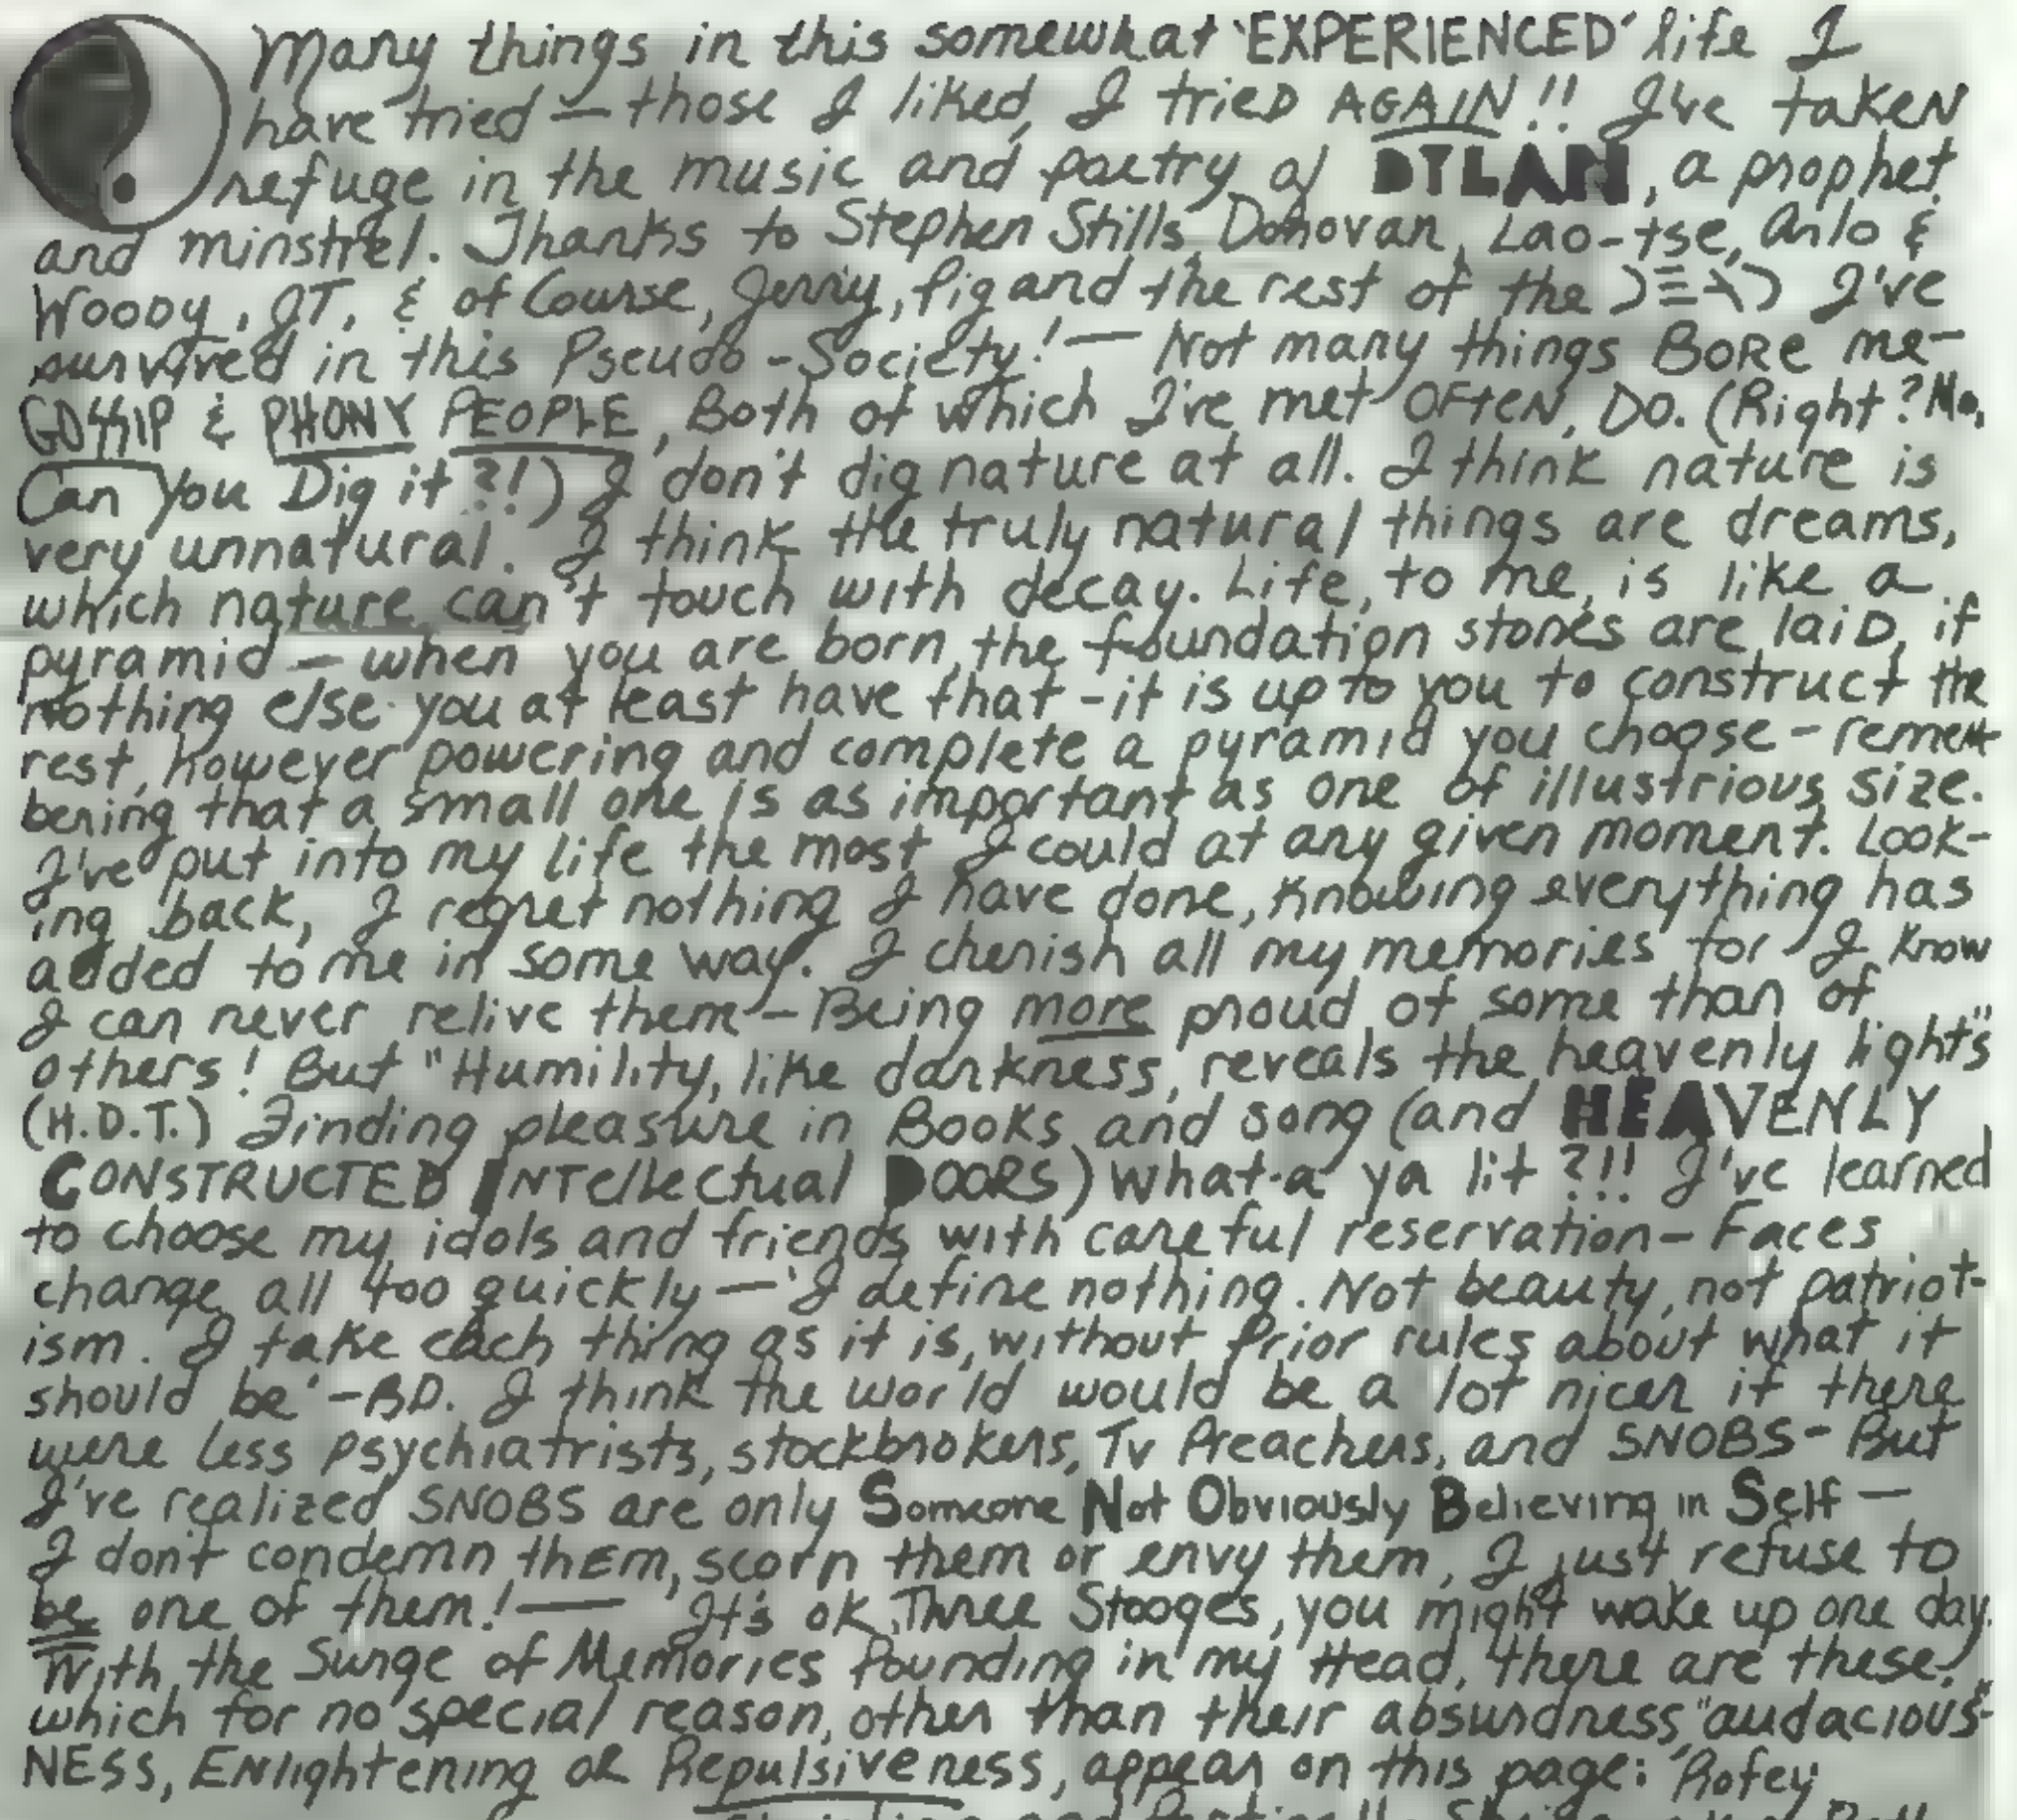 Many things in this somewhat 'EXPERIENCED' life I
have tried — those I liked, I triED AGAIN!! I've takeN
refuge in the music and poetry of DYLAN, a prophet
and minstrel. Thanks to Stephen Stills, Donovan, Lao-tse, Arlo &
Woody, JT, & of Course, Jerry, Pig and the rest of the I've
survived in this Pseudo-Society! — Not many things BORe me-
GOSSIP & PHONY PEOPLE, Both of which I've met OFteN, DO. (Right? Mo,
Can You Dig it?!) I don't dig nature at all. I think nature is
very unnatural. I think the truly natural things are dreams,
which nature can't touch with decay. Life, to me, is like a
pyramid — when you are born, the foundation stones are laiD, if
nothing else you at least have that - it is up to you to construct the
rest, however powering and complete a pyramid you choose - remem-
bering that a small one is as important as one of illustrious size.
I've put into my life the most I could at any given moment. Look-
ing back, I regret nothing I have done, knowing everything has
added to me in some way. I cherish all my memories for I know
I can never relive them — Being more proud of some than of
others! But "Humility, like darkness, reveals the heavenly lights"
(H.D.T.) Finding pleasure in Books and song (and HEAVENLY
CONSTRUCTED INTellectual DOORS) what-a ya lit?!! I've learned
to choose my idols and friends with careful reservation - Faces
change all too quickly — 'I define nothing. Not beauty, not patriot-
ism. I take each thing as it is, without Prior rules about what it
should be' - BD. I think the world would be a lot nicer if there
were less psychiatrists, stockbrokers, Tv Preachers, and SNOBS - But
I've realized SNOBS are only Someone Not Obviously Believing in Self —
I don't condemn thEm, scorn them or envy them, I just refuse to
be one of them! — 'It's ok Three Stooges, you might wake up one day.
With the Surge of Memories Pounding in my Head, there are these!
which for no special reason, other than their absurdness, "audacious-
NESS, ENlightening OR Repulsiveness, appear on this page: 'Rofey